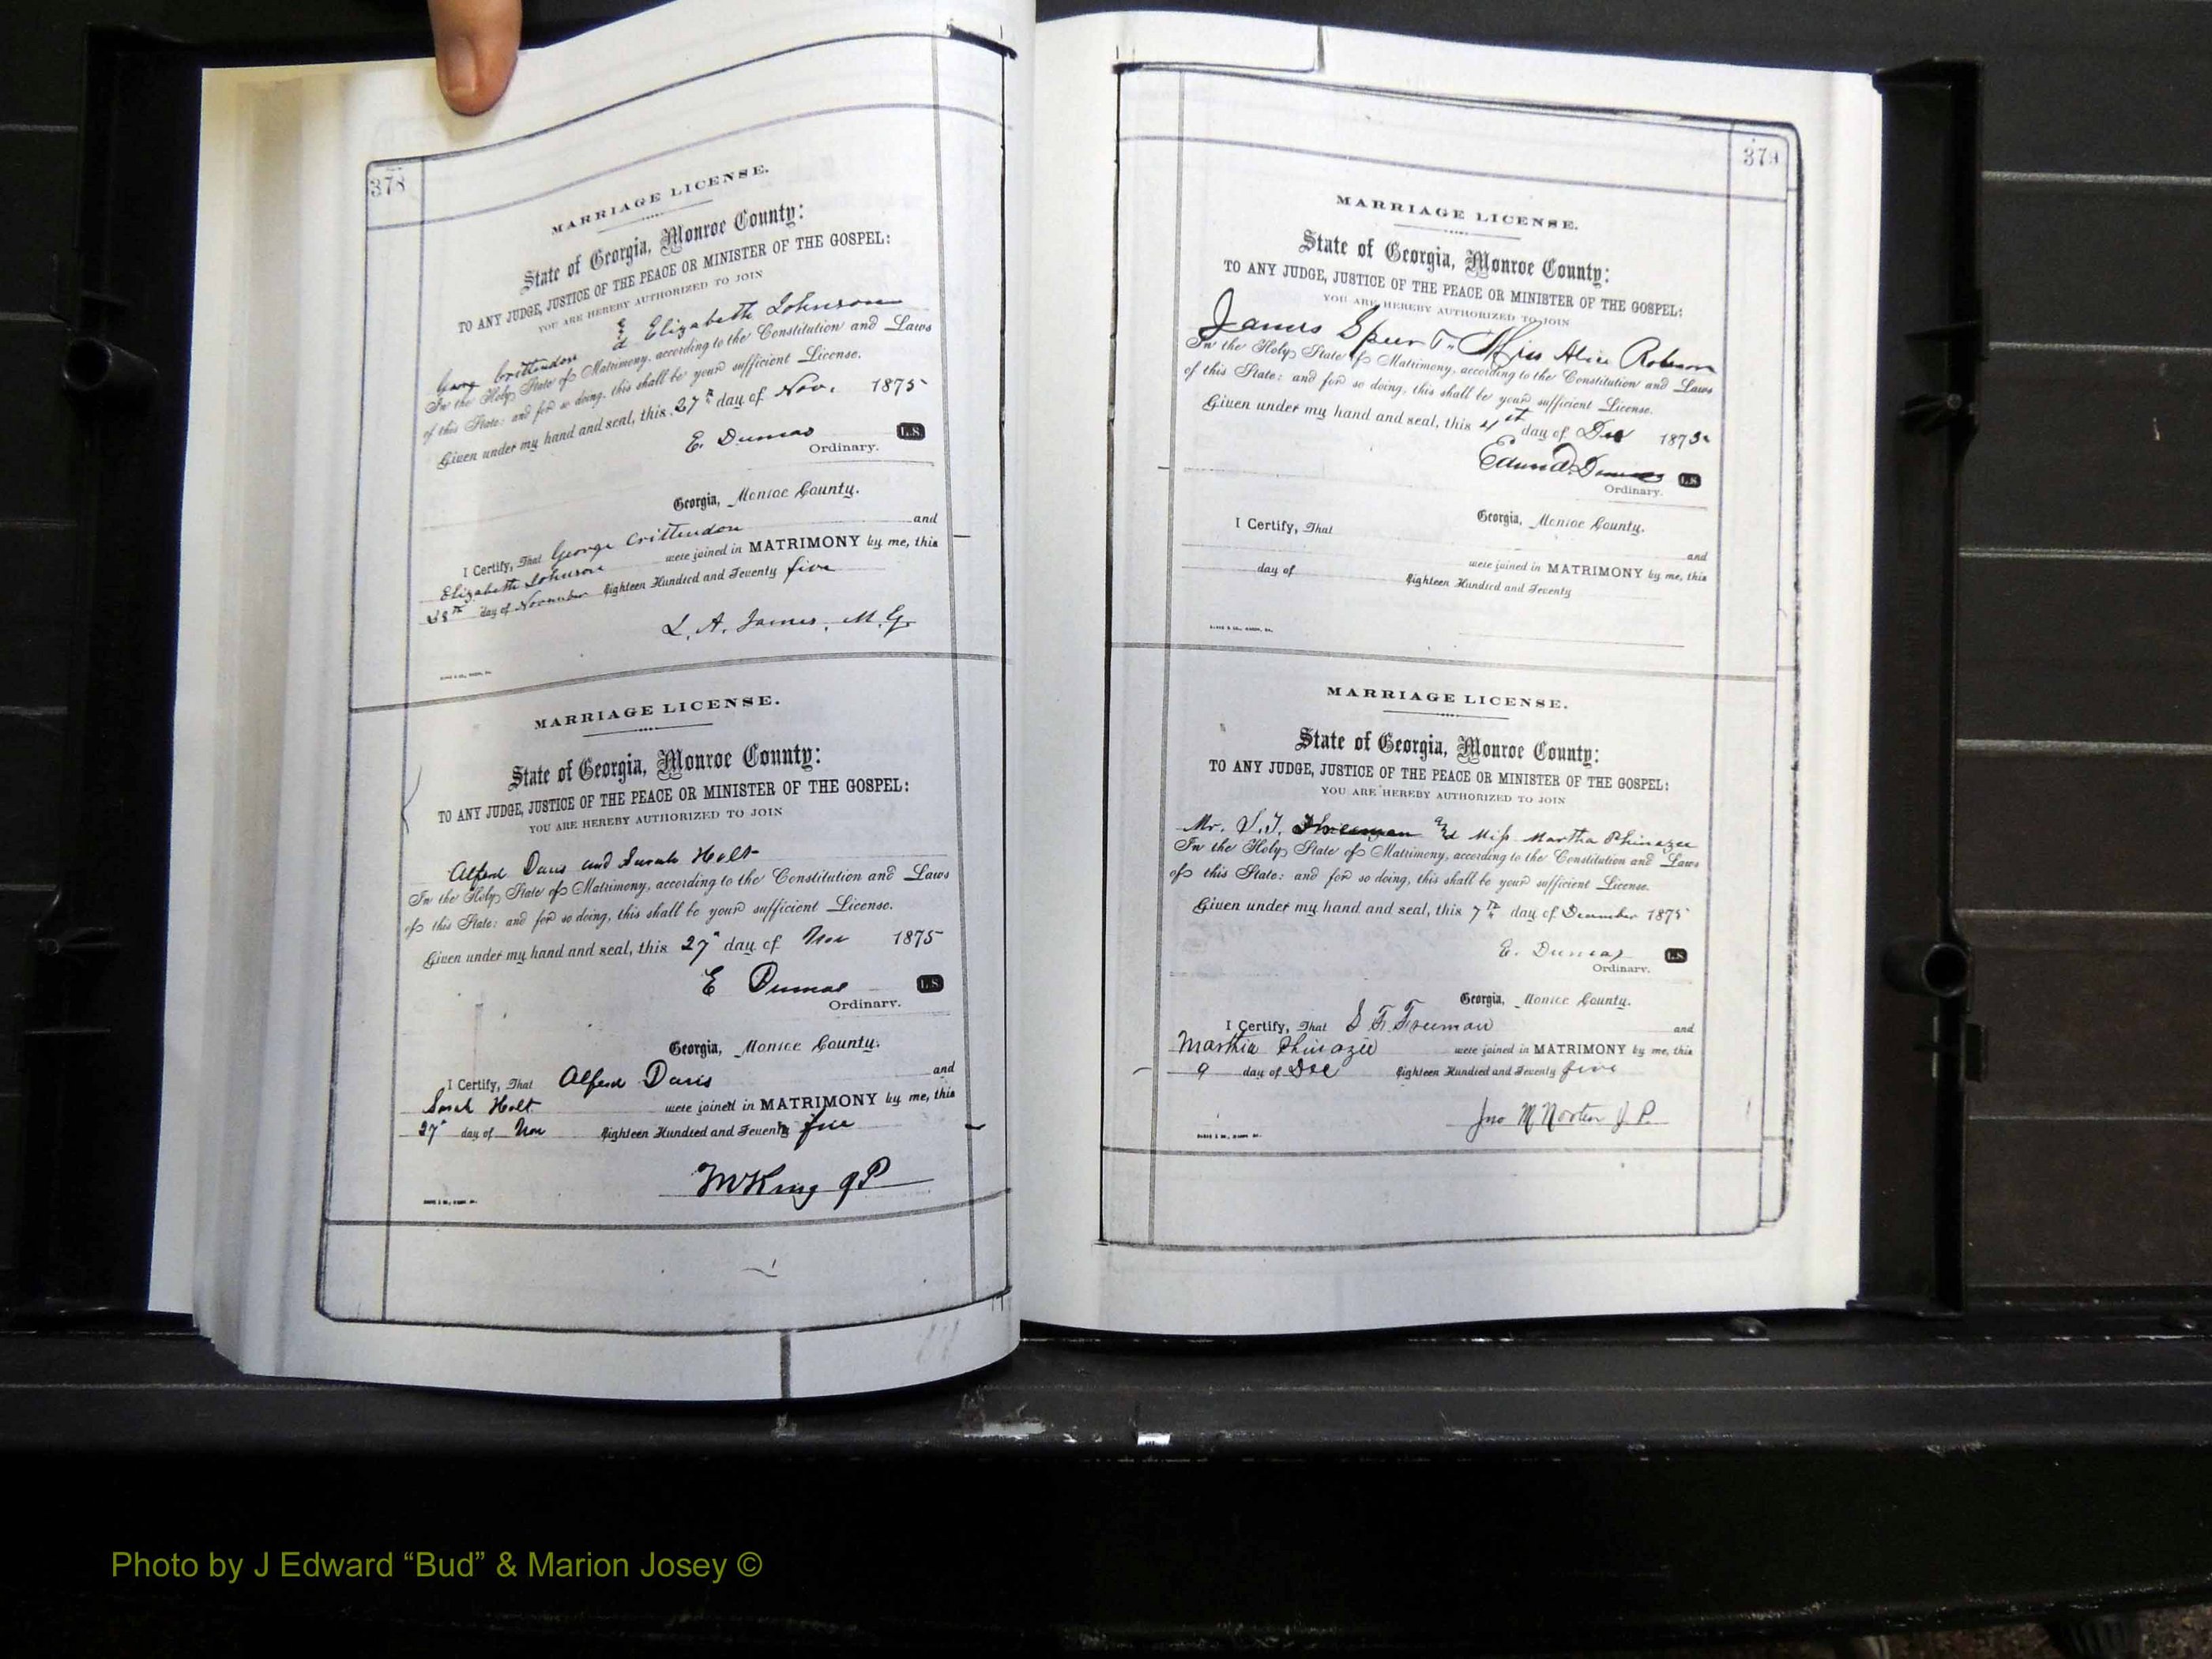 378
MARRIAGE LICENSE.
State of Georgia, Monroe County:
TO ANY JUDGE, JUSTICE OF THE PEACE OR MINISTER OF THE GOSPEL:
YOU ARE HEREBY AUTHORIZED TO JOIN
Georg Crittendon & Elizabeth Johnson
In the Holy State of Matrimony, according to the Constitution and Laws
of this State: and for so doing, this shall be your sufficient License.
Given under my hand and seal, this 27th day of Nov. 1875
E. Dumas L.S.
Ordinary.
Georgia, Monroe County.
I Certify, That George Crittendon and
Elizabeth Johnson were joined in MATRIMONY by me, this
28th day of November Eighteen Hundred and Seventy five
L. A. James, M. G.
MARRIAGE LICENSE.
State of Georgia, Monroe County:
TO ANY JUDGE, JUSTICE OF THE PEACE OR MINISTER OF THE GOSPEL:
YOU ARE HEREBY AUTHORIZED TO JOIN
Alfred Davis and Sarah Holt
In the Holy State of Matrimony, according to the Constitution and Laws
of this State: and for so doing, this shall be your sufficient License.
Given under my hand and seal, this 27" day of Nov 1875
E Dumas L.S.
Ordinary.
Georgia, Monroe County.
I Certify, That Alfred Davis and
Sarah Holt were joined in MATRIMONY by me, this
27" day of Nov Eighteen Hundred and Seventy five
King JP
379
MARRIAGE LICENSE.
State of Georgia, Monroe County:
TO ANY JUDGE, JUSTICE OF THE PEACE OR MINISTER OF THE GOSPEL:
YOU ARE HEREBY AUTHORIZED TO JOIN
James Speer To Miss Alice
In the Holy State of Matrimony, according to the Constitution and Laws
of this State: and for so doing, this shall be your sufficient License.
Given under my hand and seal, this 4th day of Dec 1875
Dumas L.S.
Ordinary.
Georgia, Monroe County.
I Certify, That
and
were joined in MATRIMONY by me, this
day of Eighteen Hundred and Seventy
MARRIAGE LICENSE.
State of Georgia, Monroe County:
TO ANY JUDGE, JUSTICE OF THE PEACE OR MINISTER OF THE GOSPEL:
YOU ARE HEREBY AUTHORIZED TO JOIN
Mr. Freeman & Miss Martha Phinazee
In the Holy State of Matrimony, according to the Constitution and Laws
of this State: and for so doing, this shall be your sufficient License.
Given under my hand and seal, this 7th day of December 1875
E. Dumas L.S.
Ordinary.
Georgia, Monroe County.
I Certify, That S F. Freeman and
Marthia Phinazee were joined in MATRIMONY by me, this
9 day of Dec Eighteen Hundred and Seventy five
Jno M Norten J. P.
Photo by J Edward “Bud” & Marion Josey ©